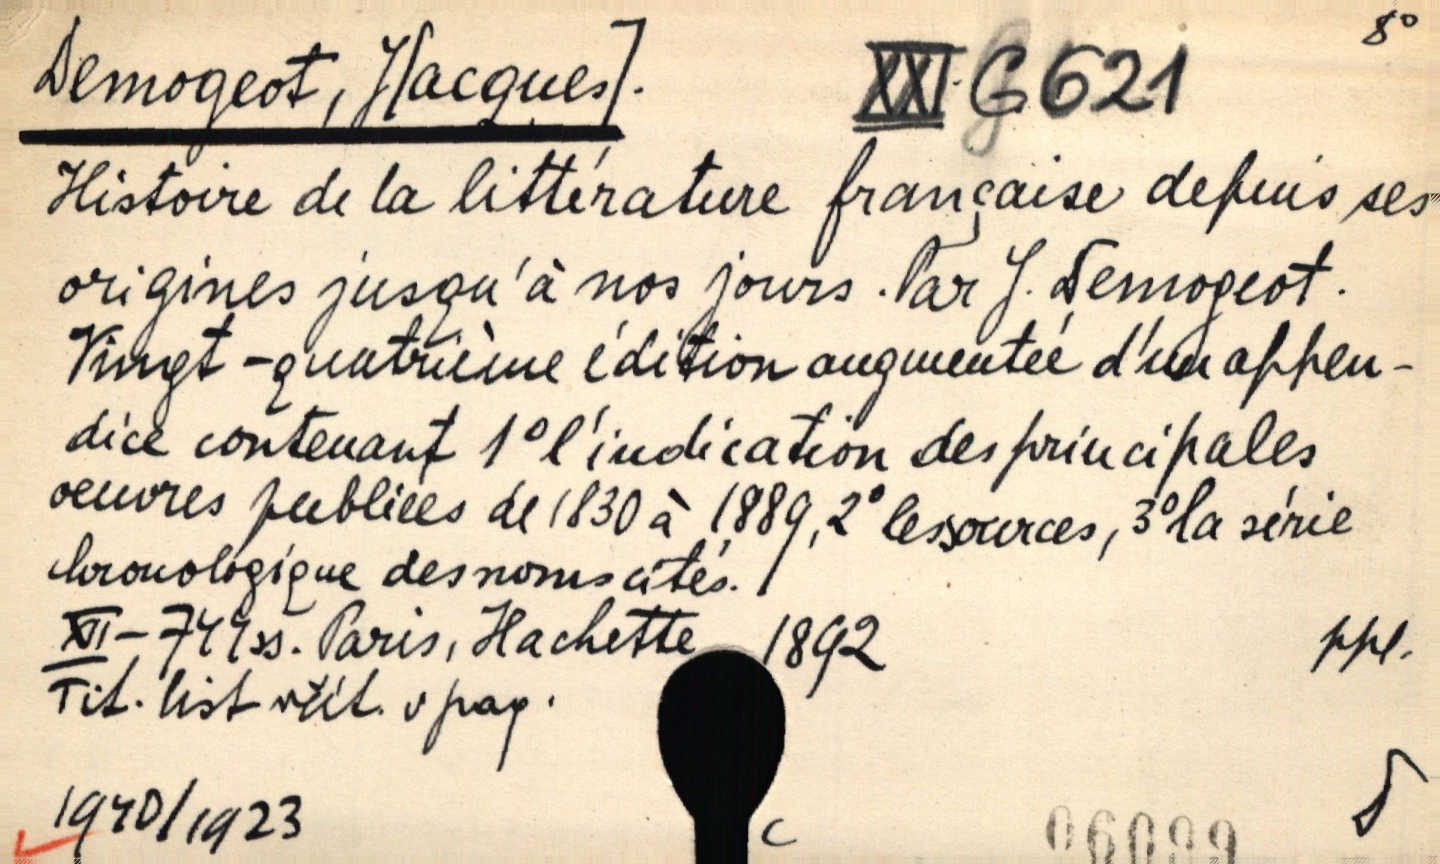 8°
Demogeot, J[acques].
XXI. G 621
Histoire de la littérature française depuis ses
origines jusqu'à nos jours. Par J. Demogeot.
Vingt-quatrième édition augmentée d'un appen-
dice contenant 1° l'indication des principales
oeuvres publiées de 1830 à 1889, 2° les sources, 3° la série
chronologique des noms cités.
XII - 749 ss. Paris, Hachette 1892
ppl.
Tit. list včít. v pag.
1940/1923
c